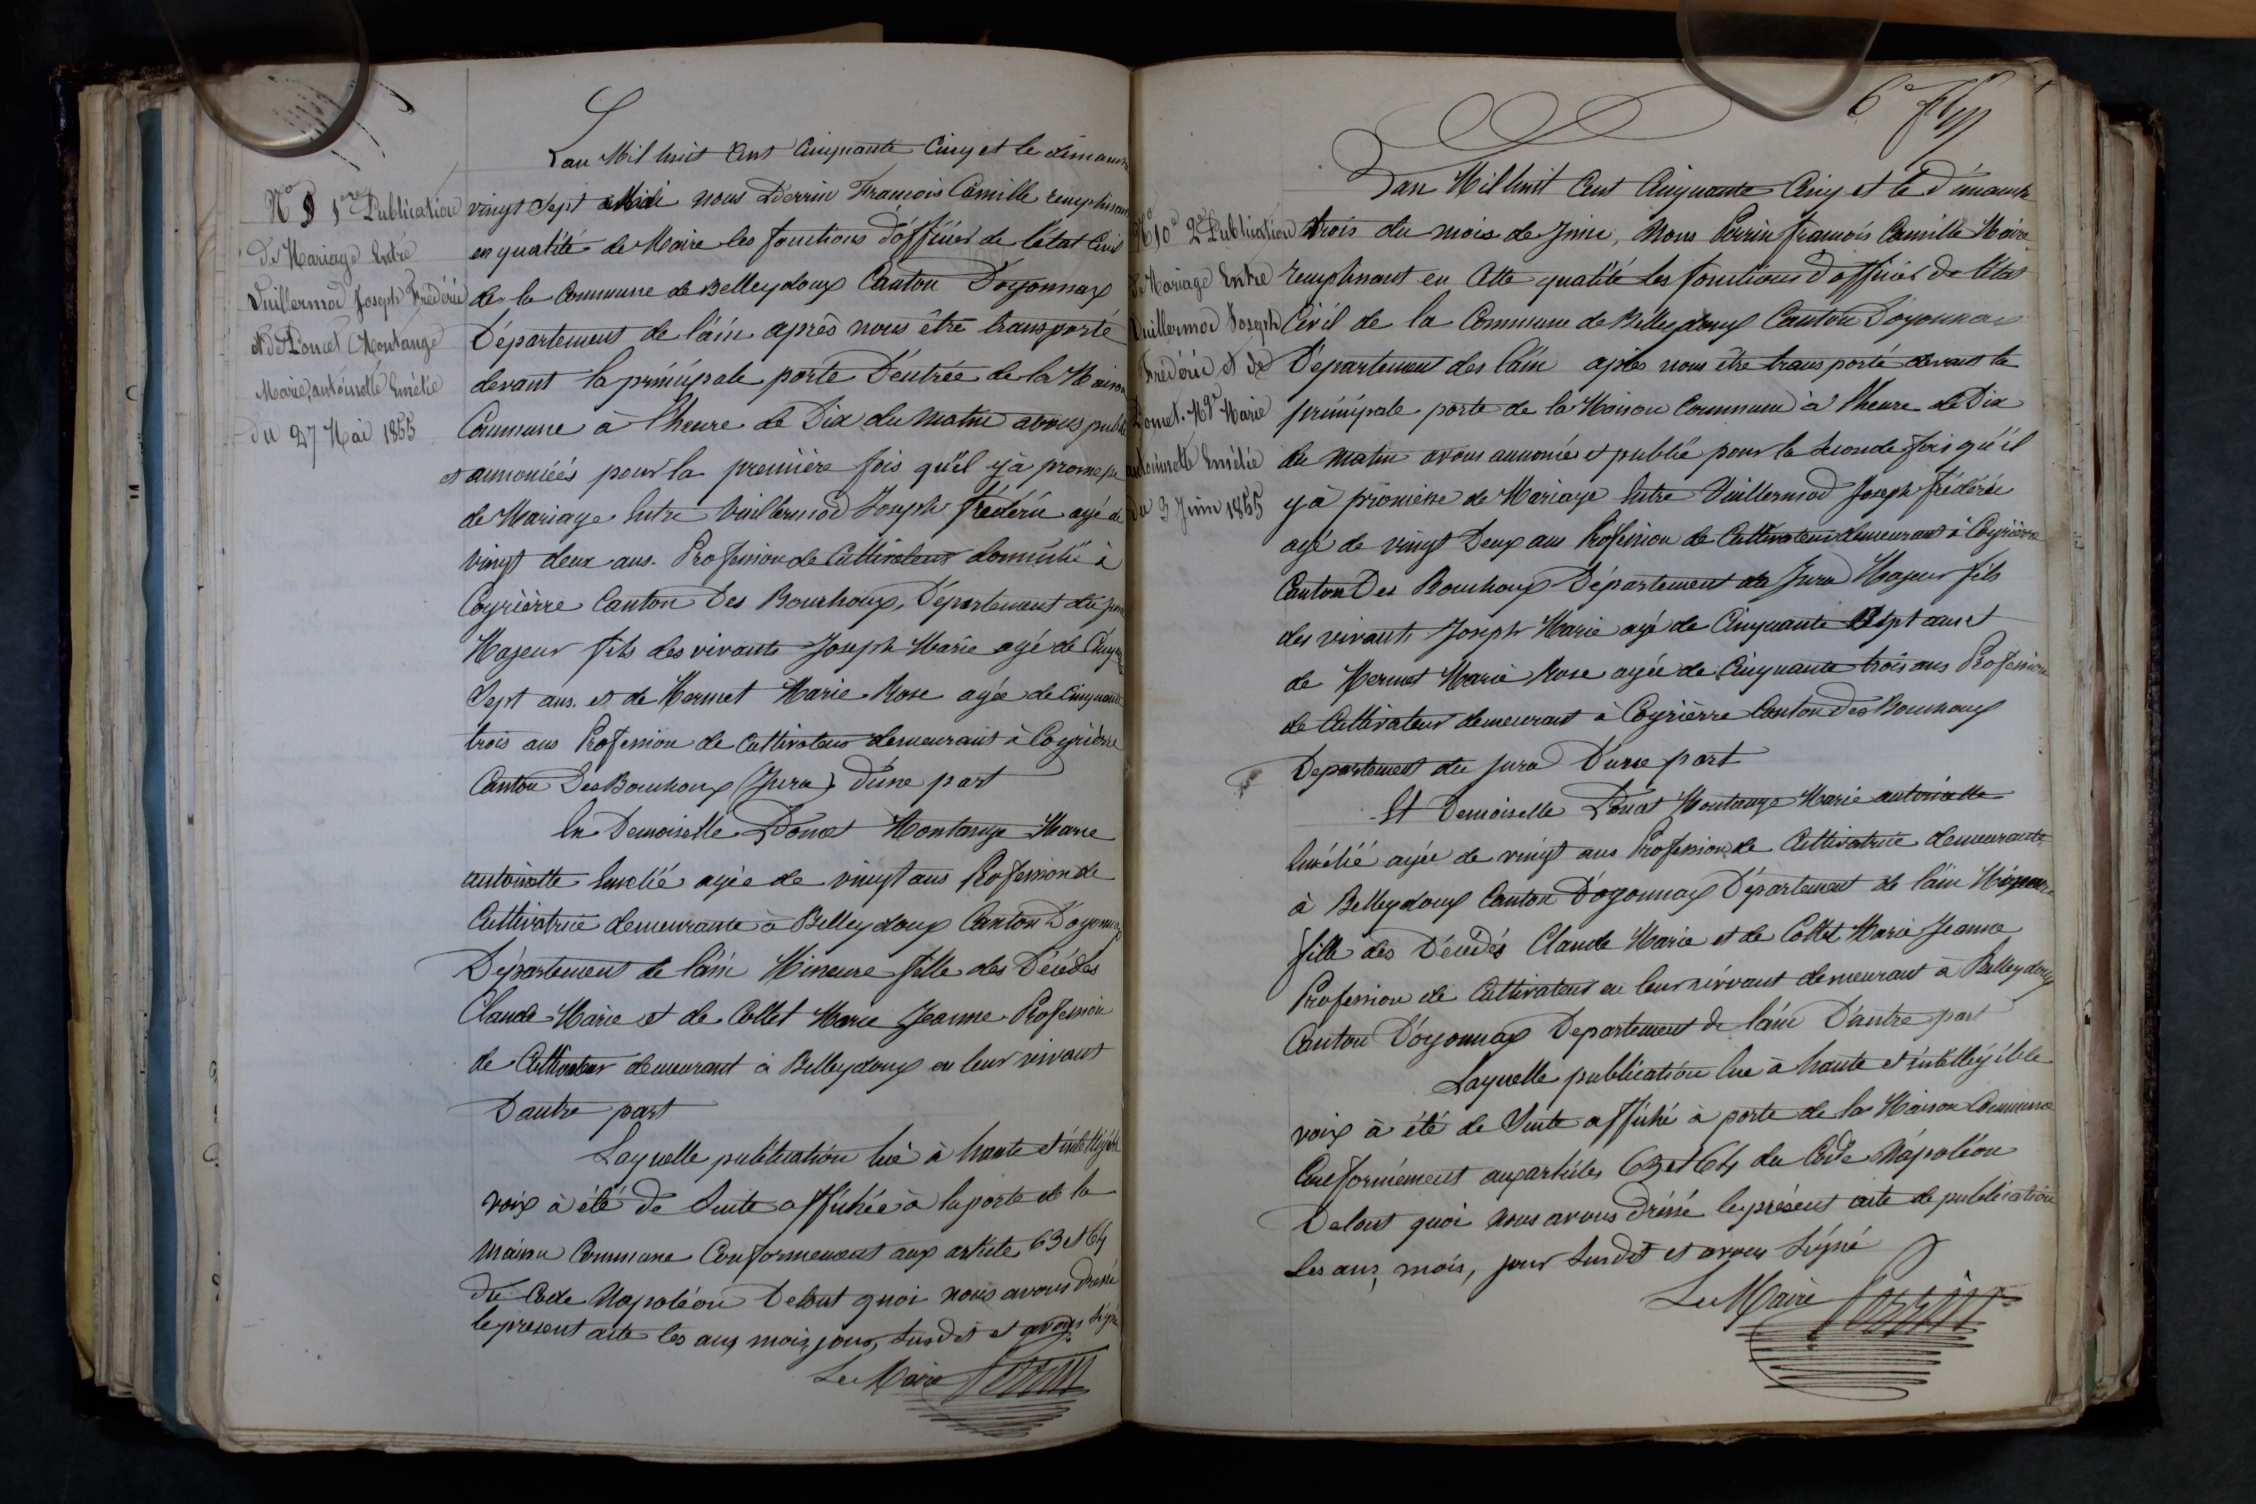 N° 9 1ere Publication
De Mariage Entre
Vuillermod Joseph Frédéric
et de Poncet Montange
Marie, antoinette Emélie
du 27 Mai 1855
L'an Mil huit Cent Cinquante Cinq et le dimanche
vingt Sept Mai nous Perrin François Camille remplissant
en qualité de Maire les fonctions d'officier de l'état Civil
de la Commune de Belleydoux Canton D'oyonnax
Département de l'ain après nous être transporté
devant la principale porte D'entrée de la Maison
Commune à l'heure de Dix du Matin avons publié
et annoncées pour la première fois qu'il y à promesse
de Mariage Entre Vuillermod Joseph Frédéric agé de
vingt deux ans. Profession de Cultivateur domicilié à
Coyrièrre Canton Des Bouchoux, Département du jura
Majeur fils des vivants Joseph Marie agé de Cinquante
Sept ans. et de Mermet Marie Rose agée de Cinquante
trois ans Profession de Cultivateur demeurant à Coyrièrre
Canton Des Bouchoux (Jura) d'une part
Et Demoiselle Poncet Montange Marie
antoinette Emelié agée de vingt ans Profession de
Cultivatrice demeurante à Belleydoux Canton D'oyonnax
Département de l'ain Mineure fille des Décédés
Claude Marie et de Collet Marie Jeanne Profession
de Cultivateur demeurant à Belleydoux en leur vivant
D'autre part
Laquelle publication lue à haute et intelligible
voix à été de Suite affichée à la porte de la
maison Commune Conformement aux article 63 et 64
du Code Napoléon De tout quoi nous avons dressé
le présent acte les ans mois, jour, Susdit et avons signé
Le Maire Perrin
6e
N° 10 2e Publication
De Mariage Entre
Vuillermod Joseph
Frédéric et de
Poncet. Mge Marie
antoinette Emélie
du 3 Juin 1855
L'an Mil huit Cent Cinquante Cinq et le dimanche
trois du mois de Juin, Nous Perrin françois Camille Maire
remplissant en Cette qualité les fonctions d'officier de l'état
Civil de la Commune de Belleydoux Canton D'oyonnax
Département des l'ain après nous être transporté devant la
principale porte de la Maison Commune à l'heure de Dix
du matin avons annoncé et publié pour la Seconde fois qu'il
y à promesse de Mariage Entre Vuillermod Joseph frédéric
agé de vingt Deux ans Profession de Cultivateur demeurant à Coyrièrre
Canton Des Bouchoux Département du Jura Majeur fils
des vivants Joseph Marie agé de Cinquante Sept ans et
de Mermet Marie Rose agée de Cinquante trois ans Profession
de Cultivateur demeurant à Coyrièrre Canton Des Bouchoux
Departement du Jura D'une part
Et Demoiselle Poncet Montange Marie antoinette
Emélié agée de vingt ans Profession de Cultivatrice demeurante
à Belleydoux Canton D'oyonnax Département de l'ain Mineure
fille des Décédés Claude Marie et de Collet Marie Jeanne
Profession de Cultivateur en leur vivant demeurant à Belleydoux
Canton D'oyonnax Departement de l'ain D'autre part
Laquelle publication lue à haute et intelligible
voix à été de Suite affiché à porte de la Maison Commune
Conformément aux articles 63 et 64 du Code Napoléon
De tout quoi nous avons dréssé le présent acte de publication
Les ans, mois, jour Susdit et avons Signé
Le Maire Perrin